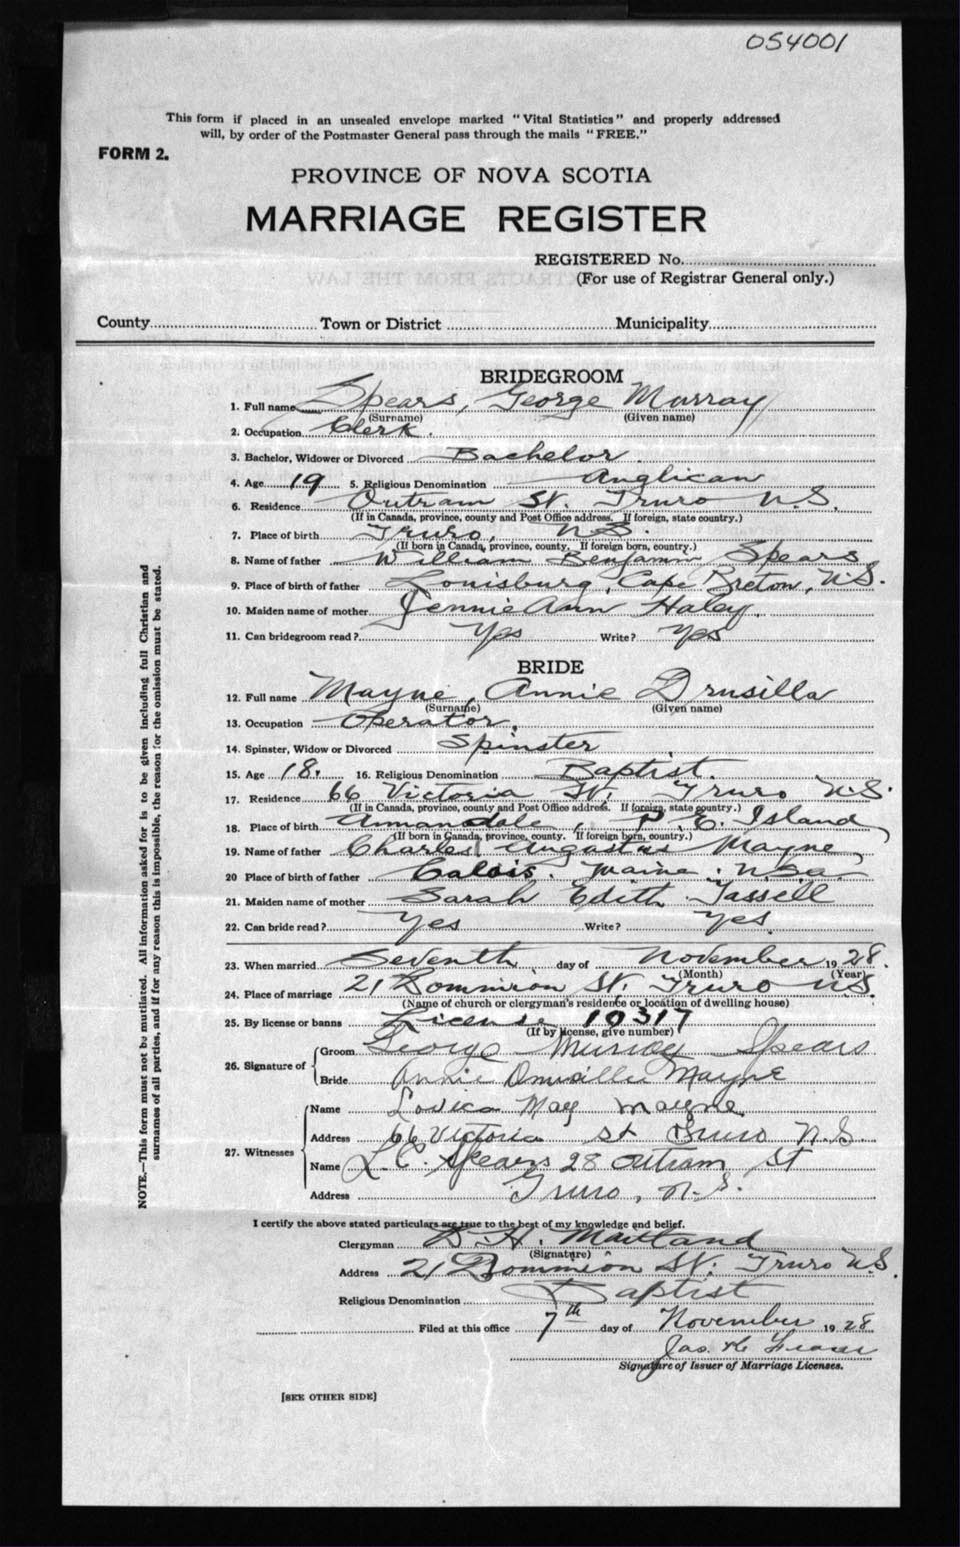 054001
This form if placed in an unsealed envelope marked "Vital Statistics" and properly addressed
will, by order of the Postmaster General pass through the mails "FREE."
FORM 2.
PROVINCE OF NOVA SCOTIA
MARRIAGE REGISTER
REGISTERED No.
(For use of Registrar General only.)
EXTRACTS FROM THE LAW
County Town or District Municipality
BRIDEGROOM
1. Full name Spears, George Murray
(Surname) (Given name)
2. Occupation Clerk.
3. Bachelor, Widower or Divorced Bachelor
4. Age 19 5. Religious Denomination Anglican
6. Residence Outram St. Truro N.S.
(If in Canada, province, county and Post Office address. If foreign, state country.)
7. Place of birth Truro, N.S.
(If born in Canada, province, county. If foreign born, country.)
8. Name of father William Benjamin Spears
9. Place of birth of father Louisburg, Cape Breton, N.S.
10. Maiden name of mother Jennie Ann Haley.
11. Can bridegroom read? Yes Write? Yes
BRIDE
12. Full name Mayne, Annie Drusilla
(Surname) (Given name)
13. Occupation Operator.
14. Spinster, Widow or Divorced Spinster
15. Age 18. 16. Religious Denomination Baptist.
17. Residence 66 Victoria St. Truro N.S.
(If in Canada, province, county and Post Office address. If foreign, state country.)
18. Place of birth Annandale, P.E. Island
(If born in Canada, province, county. If foreign born, country.)
19. Name of father Charles Augustus Mayne,
20 Place of birth of father Calais. Maine. U.S.a.
21. Maiden name of mother Sarah Edith Tassell
22. Can bride read? Yes Write? Yes.
23. When married Seventh day of November 1928.
(Month) (Year)
24. Place of marriage 21 Dominion St. Truro N.S.
(Name of church or clergyman's residence or location of dwelling house)
25. By license or banns License 10317
(If by license, give number)
26. Signature of Groom George Murray Spears
Bride Annie Drusilla Mayne
27. Witnesses Name Lovica May Mayne
Address 66 Victoria St Truro N.S.
Name L. C. Spears 28 Outram St
Address Truro, N.S.
I certify the above stated particulars are true to the best of my knowledge and belief.
Clergyman B. H. Maitland
(Signature)
Address 21 Dominion St. Truro N.S.
Religious Denomination Baptist
Filed at this office 7th day of November 1928
Jas. H. Fraser
Signature of Issuer of Marriage Licenses.
[SEE OTHER SIDE]
NOTE.—This form must not be mutilated. All information asked for is to be given including full Christian and
surnames of all parties, and if for any reason this is impossible, the reason for the omission must be stated.